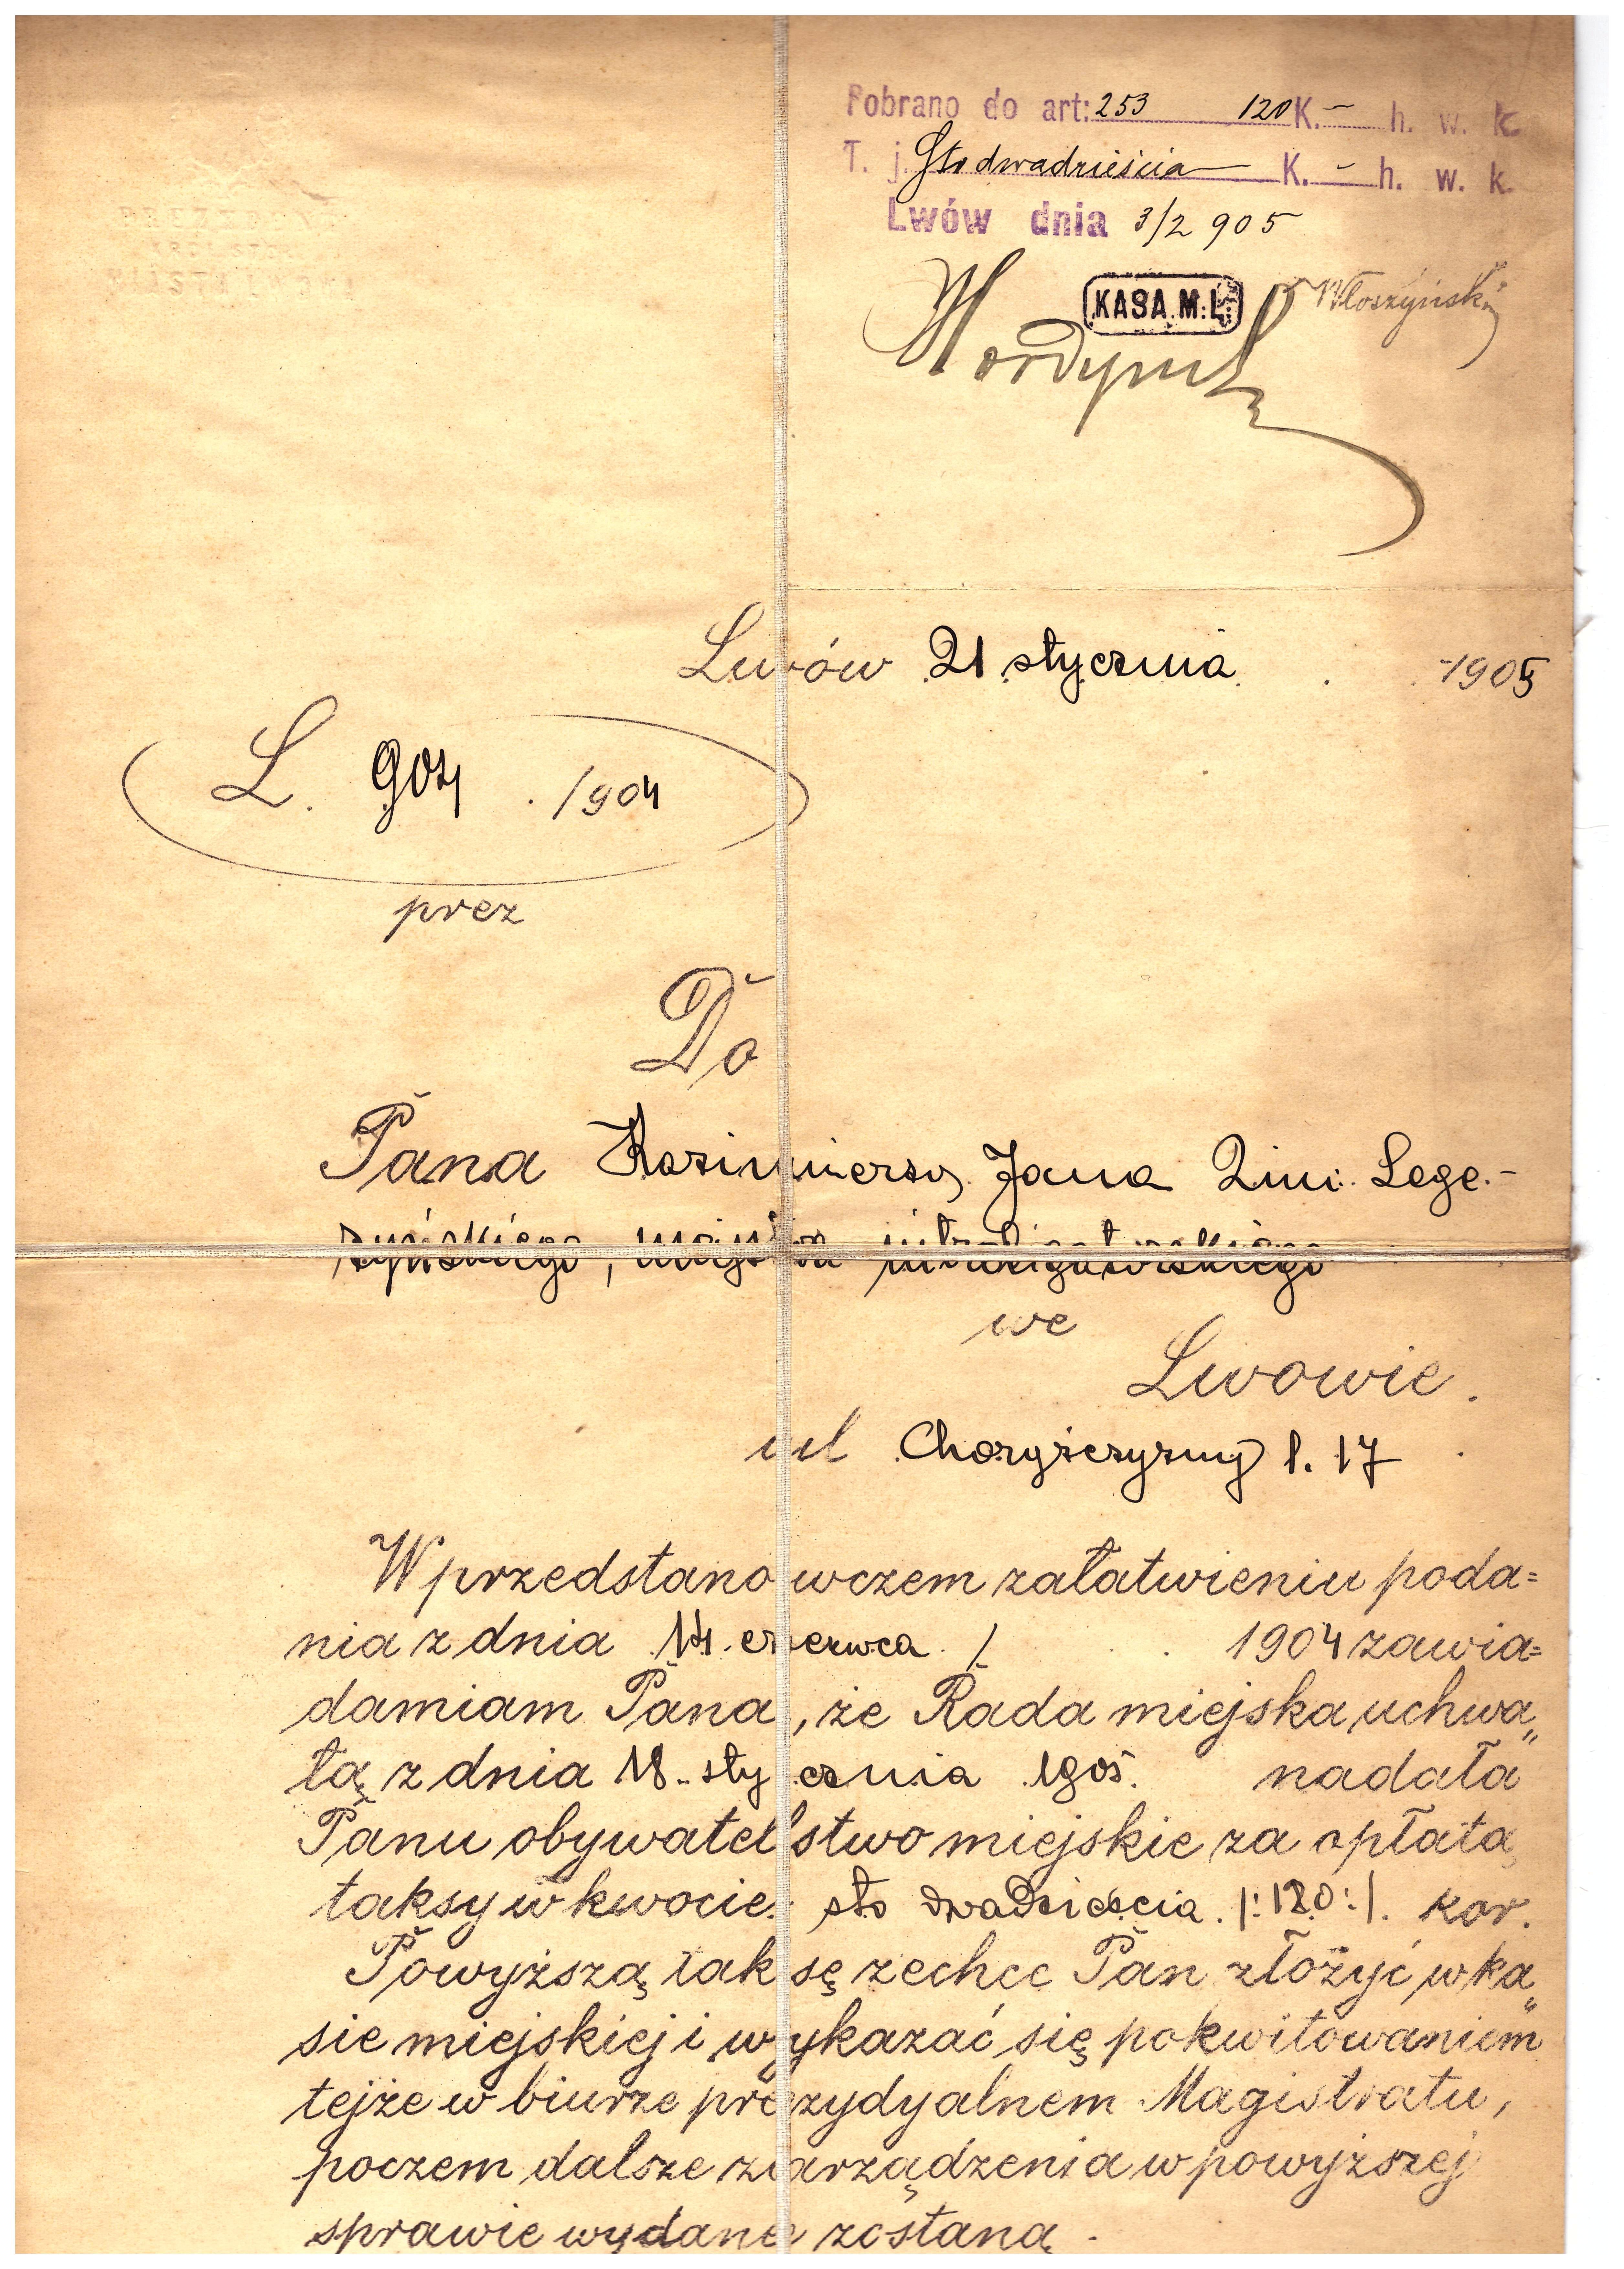 Pobrano do art: 253 120 K. – h. w. k.
T. j. Sto dwadzieścia K. – h. w. k.
Lwów dnia 3/2 905
KASA M. L.
Włoszyński
Lwów 21 stycznia 1905
L. 904 /904
prez
Do
Pana Kazimierza Jana 2im. Lege-
żyńskiego, majstra introligatorskiego
we
Lwowie.
ul Chorążczyzny l. 17
W przedstanowczem załatwieniu poda=
nia z dnia 14. czerwca / 1904 zawia=
damiam Pana, że Rada miejska uchwa„
łą z dnia 18. stycznia 1905. nadała
Panu obywatelstwo miejskie za opłatą
taksy w kwocie: sto dwadzieścia /:120:/. kor.
Powyższą taksę zechce Pan złożyć w ka„
sie miejskiej i wykazać się pokwitowaniem
tejże w biurze prezydyalnem Magistratu,
poczem dalsze zarządzenia w powyższej
sprawie wydane zostaną.